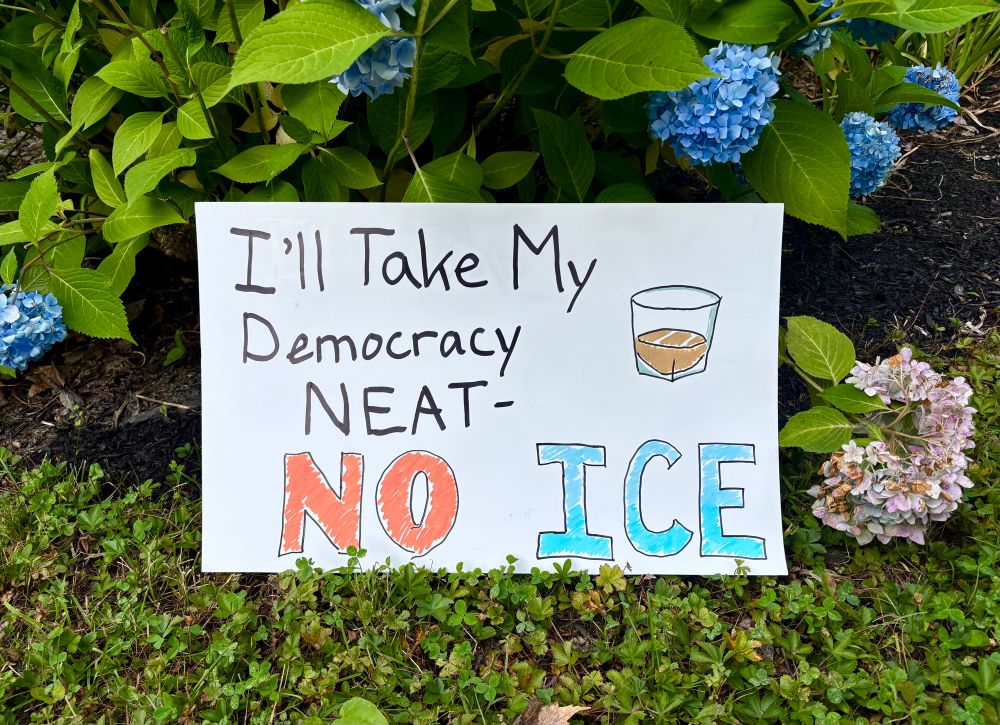 I'll Take My
Democracy
NEAT-
NO ICE